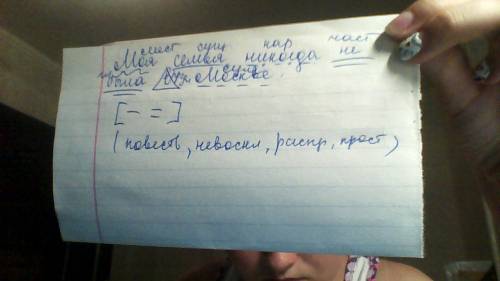 мест сущ нар част
Моя семья никогда не
была в Москве.
[— =]
(повеств, невоскл, распр, прост)